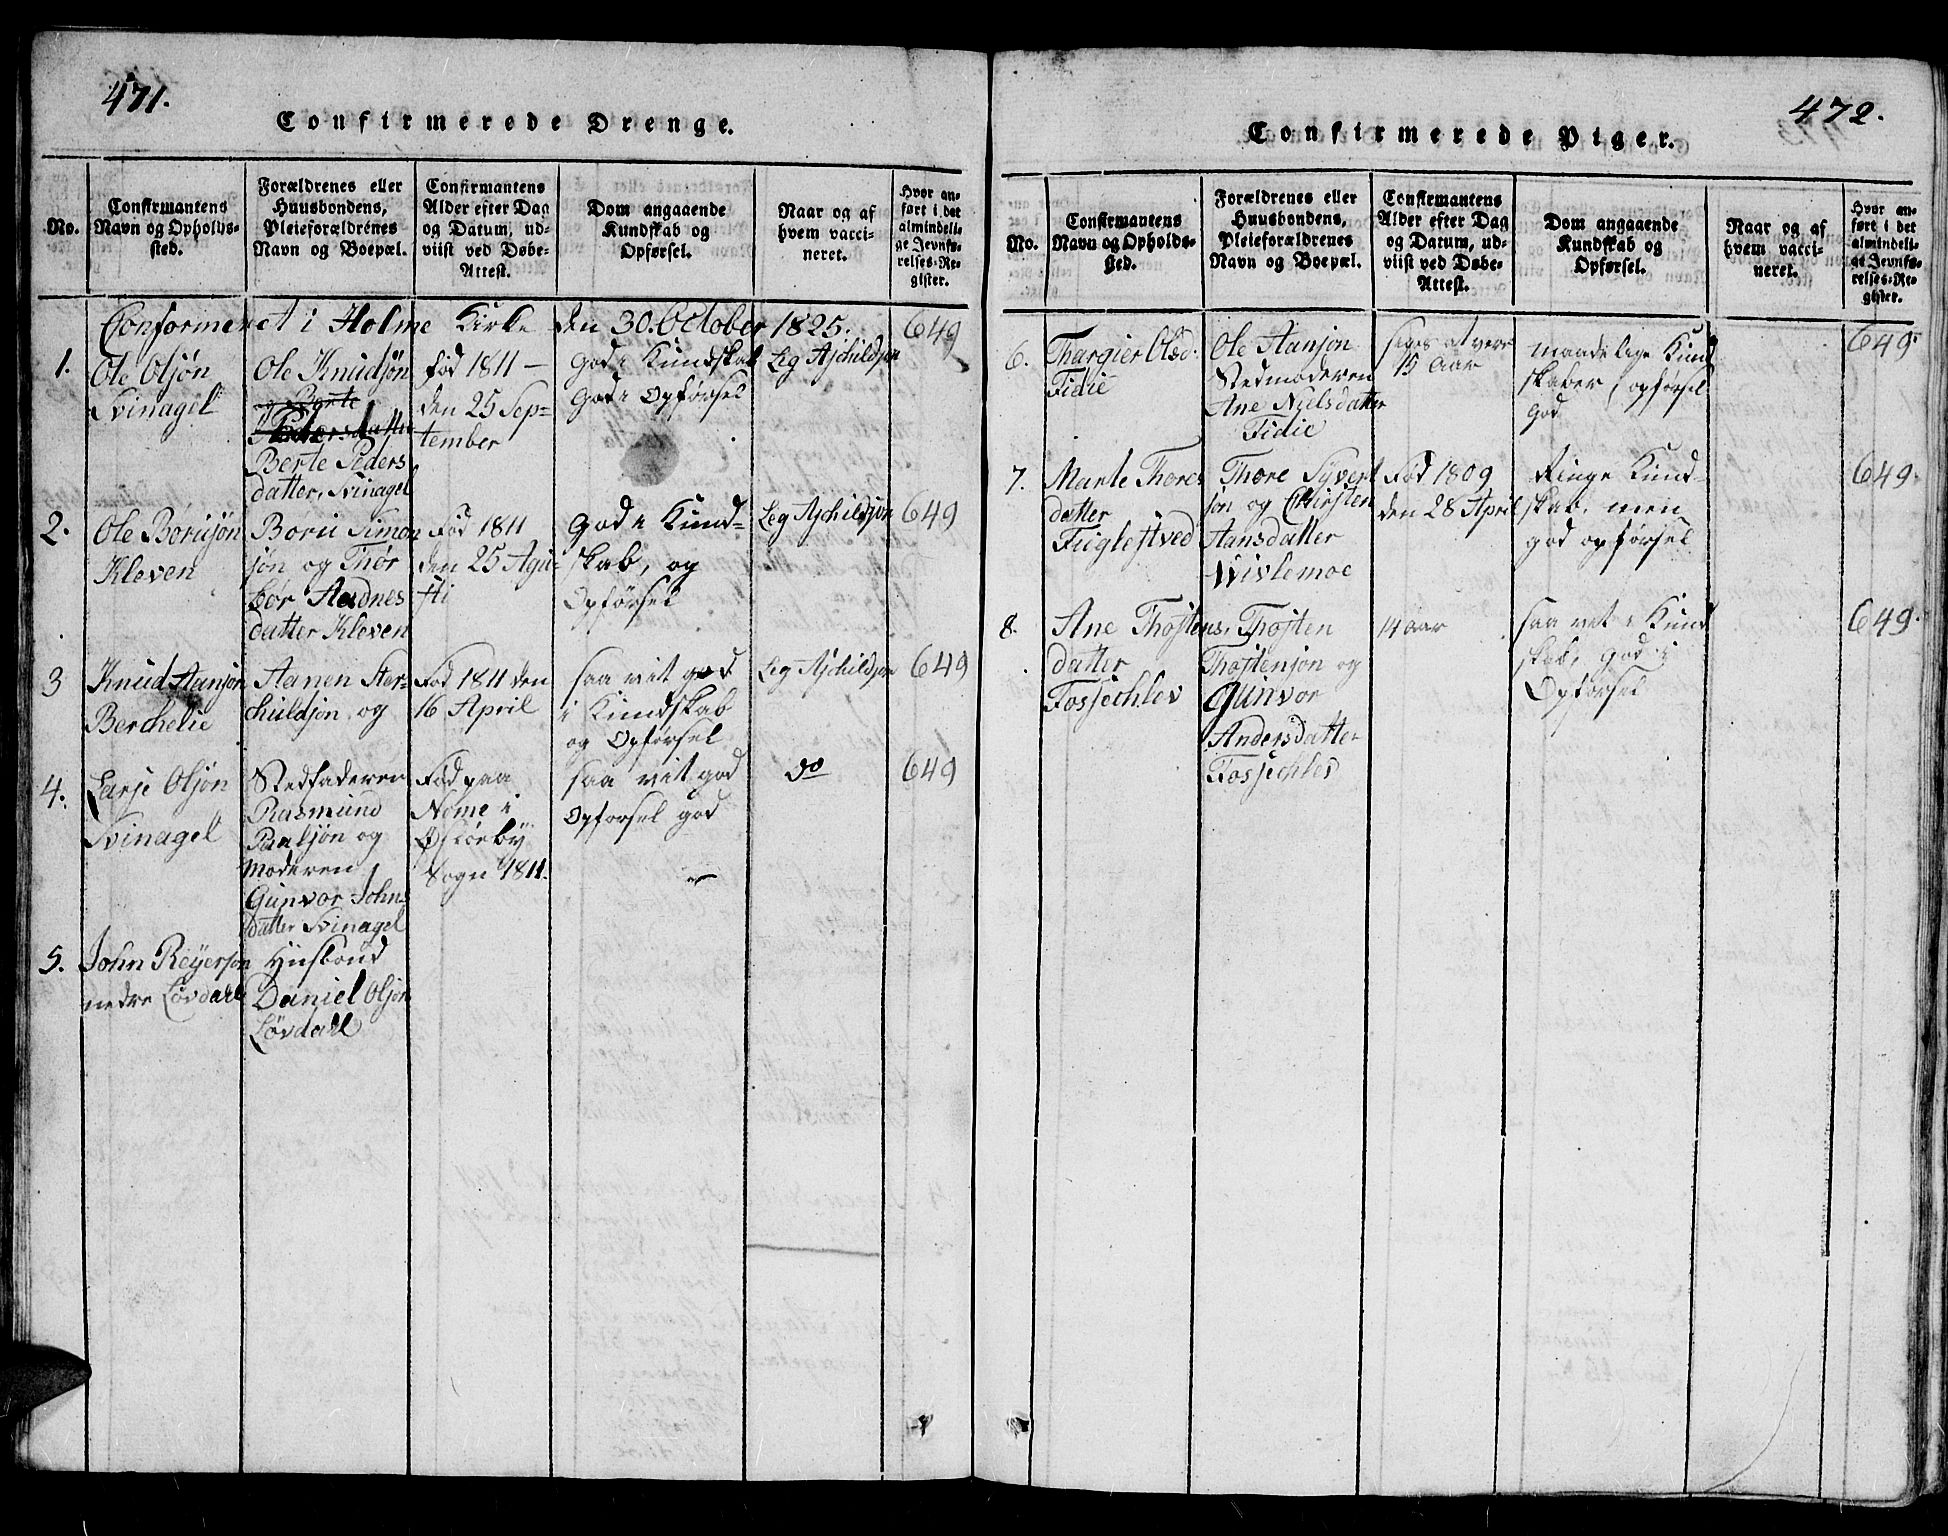 471.
Confirmerede Drenge.
No.
Confirmantens Navn og Opholds-sted.
Forældrenes eller Huusbondens, Pleieforældrenes Navn og Boepæl.
Confirmantens Alder efter Dag og Datum, ud-viist ved Døbe-Attest.
Dom angaaende Kundskab og Opførsel.
Naar og af hvem vacci-neret.
Hvor an-ført i det almindeli-ge Jevnfø-relses-Re-gister.
Conformeret i Holme Kirke den 30. October 1825.
649
1.
Ole Olsøn
Svinagel
Ole Knudsøn
og Berte
Pedersdatter
Berte Peders
datter, Svinagel
Fød 1811 –
den 25 Sep-
tember
Gode Kundskab
Gode Opførsel
Leg Aschildsøn
2.
Ole Børusøn
Kleven
Boru Simon
søn og Thor
bør Aadnes
datter Kleven
Fød 1811
den 25 Agu-
sti
Gode Kund=
skab, og
Opførsel
Leg Aschildsøn
649
3
Knud Aansøn
Berchelie
Aanen Aer-
childsøn og
Fød 1811 den
16 April
saa vit god
i Kundskab
og Opførsel
Leg Aschildsøn
649
4.
Larse Olsøn
Svinagel
Stedfaderen
Rasmund
Paalsøn og
Moderen
Gunvor John-
datter Svinagel
Fød paa
Nome i
Øslebÿ
Sogn 1811.
saa vit god
Opførsel god
do
649
5.
John Reÿersøn
nedre Løvdall
Husbond
Daniel Olsøn
Løvdall
472.
Confirmerede Piger.
No.
Confirmantens Navn og Opholds-sted.
Forældrenes eller Huusbondens, Pleieforældrenes Navn og Boepæl.
Confirmantens Alder efter Dag og Datum, ud-viist ved Døbe-Attest.
Dom angaaende Kundskab og Opførsel.
Naar og af hvem vacci-neret.
Hvor an-ført i det almindeli-ge Jevnfø-relses-Re-gister.
6.
Thargier Olsd.
Fidie
Ole Aansøn
Stedmoderen
Ane Nielsdatter
Fidie
siges at vere
15 Aar
maadelige Kund
skaber, opførsel
god
649.
7.
Marte Thores
datter
Fuglestved
Thore Syvert
søn og Chirsten
Aansdatter
Wislemoe
Fød 1809
den 28 April
Ringe Kund-
skab, men
god opførsel
649.
8.
Ane Thostens.
datter
Fossechlev
Thosten
Thostensøn og
Gunvor
Andersdatter
Fossechlev
14 Aar
saa vit i Kund
skab, god i
Opførsel
649.